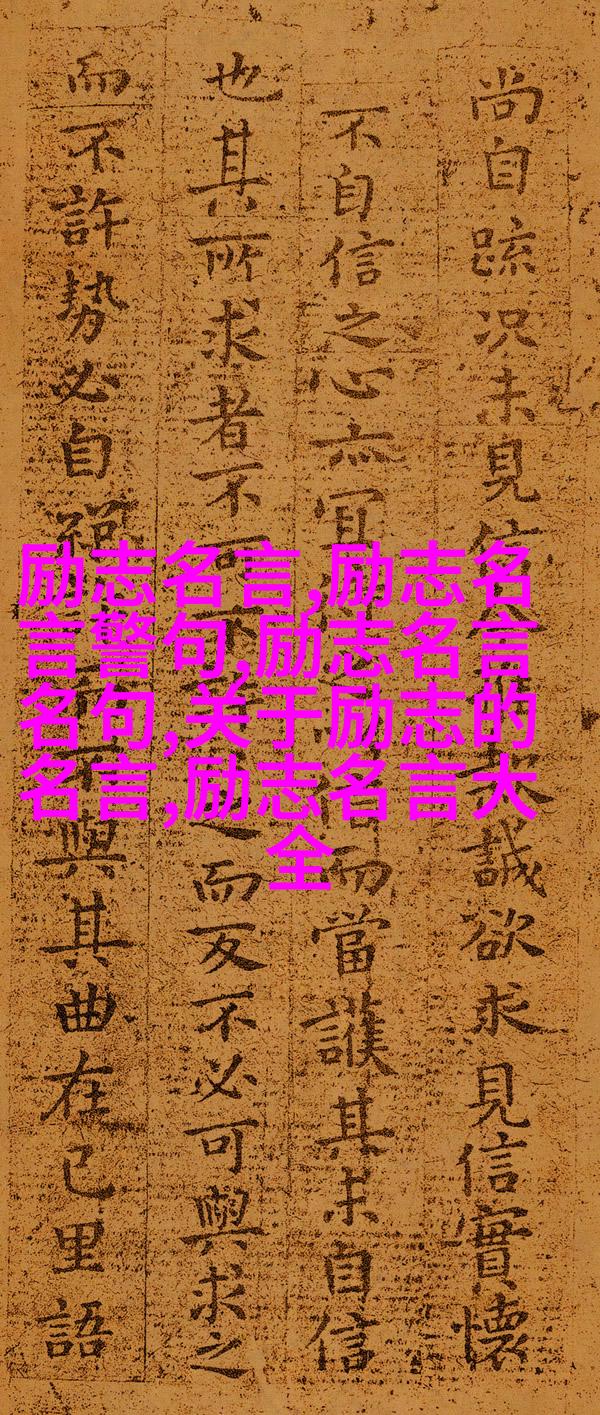 尚自踈况未見信
誠欲求見信實懷
不自信之心亦宜
而當護其未自信
也其所求者不可
之而反不必可與求之
而不許勢必自絕
不與其曲在己里語
励志名言,励志名
言警句,励志名言
名句,关于励志的
名言,励志名言大
全